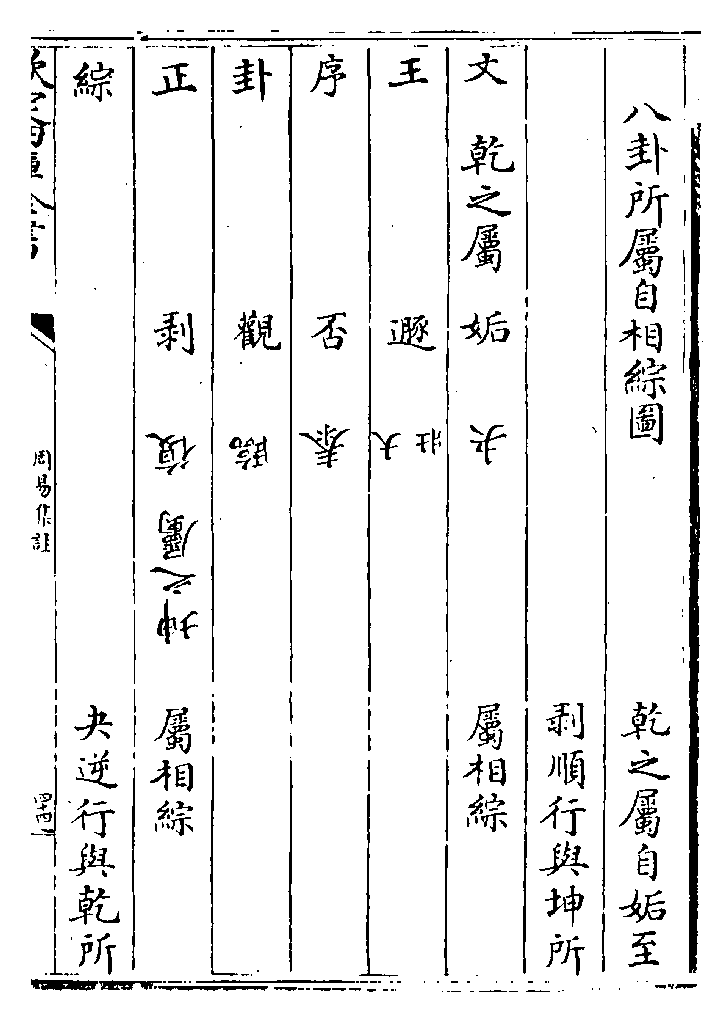 八卦所屬自相綜圖 乾之屬自姤至
剥順行與坤所
文 乾之屬 姤 夬 屬相綜
王 遯 大壯
序 否 泰
卦 觀 臨
正 剥 坤之屬 復 屬相綜
綜 夬逆行與乾所
欽定四庫全書 周易集註